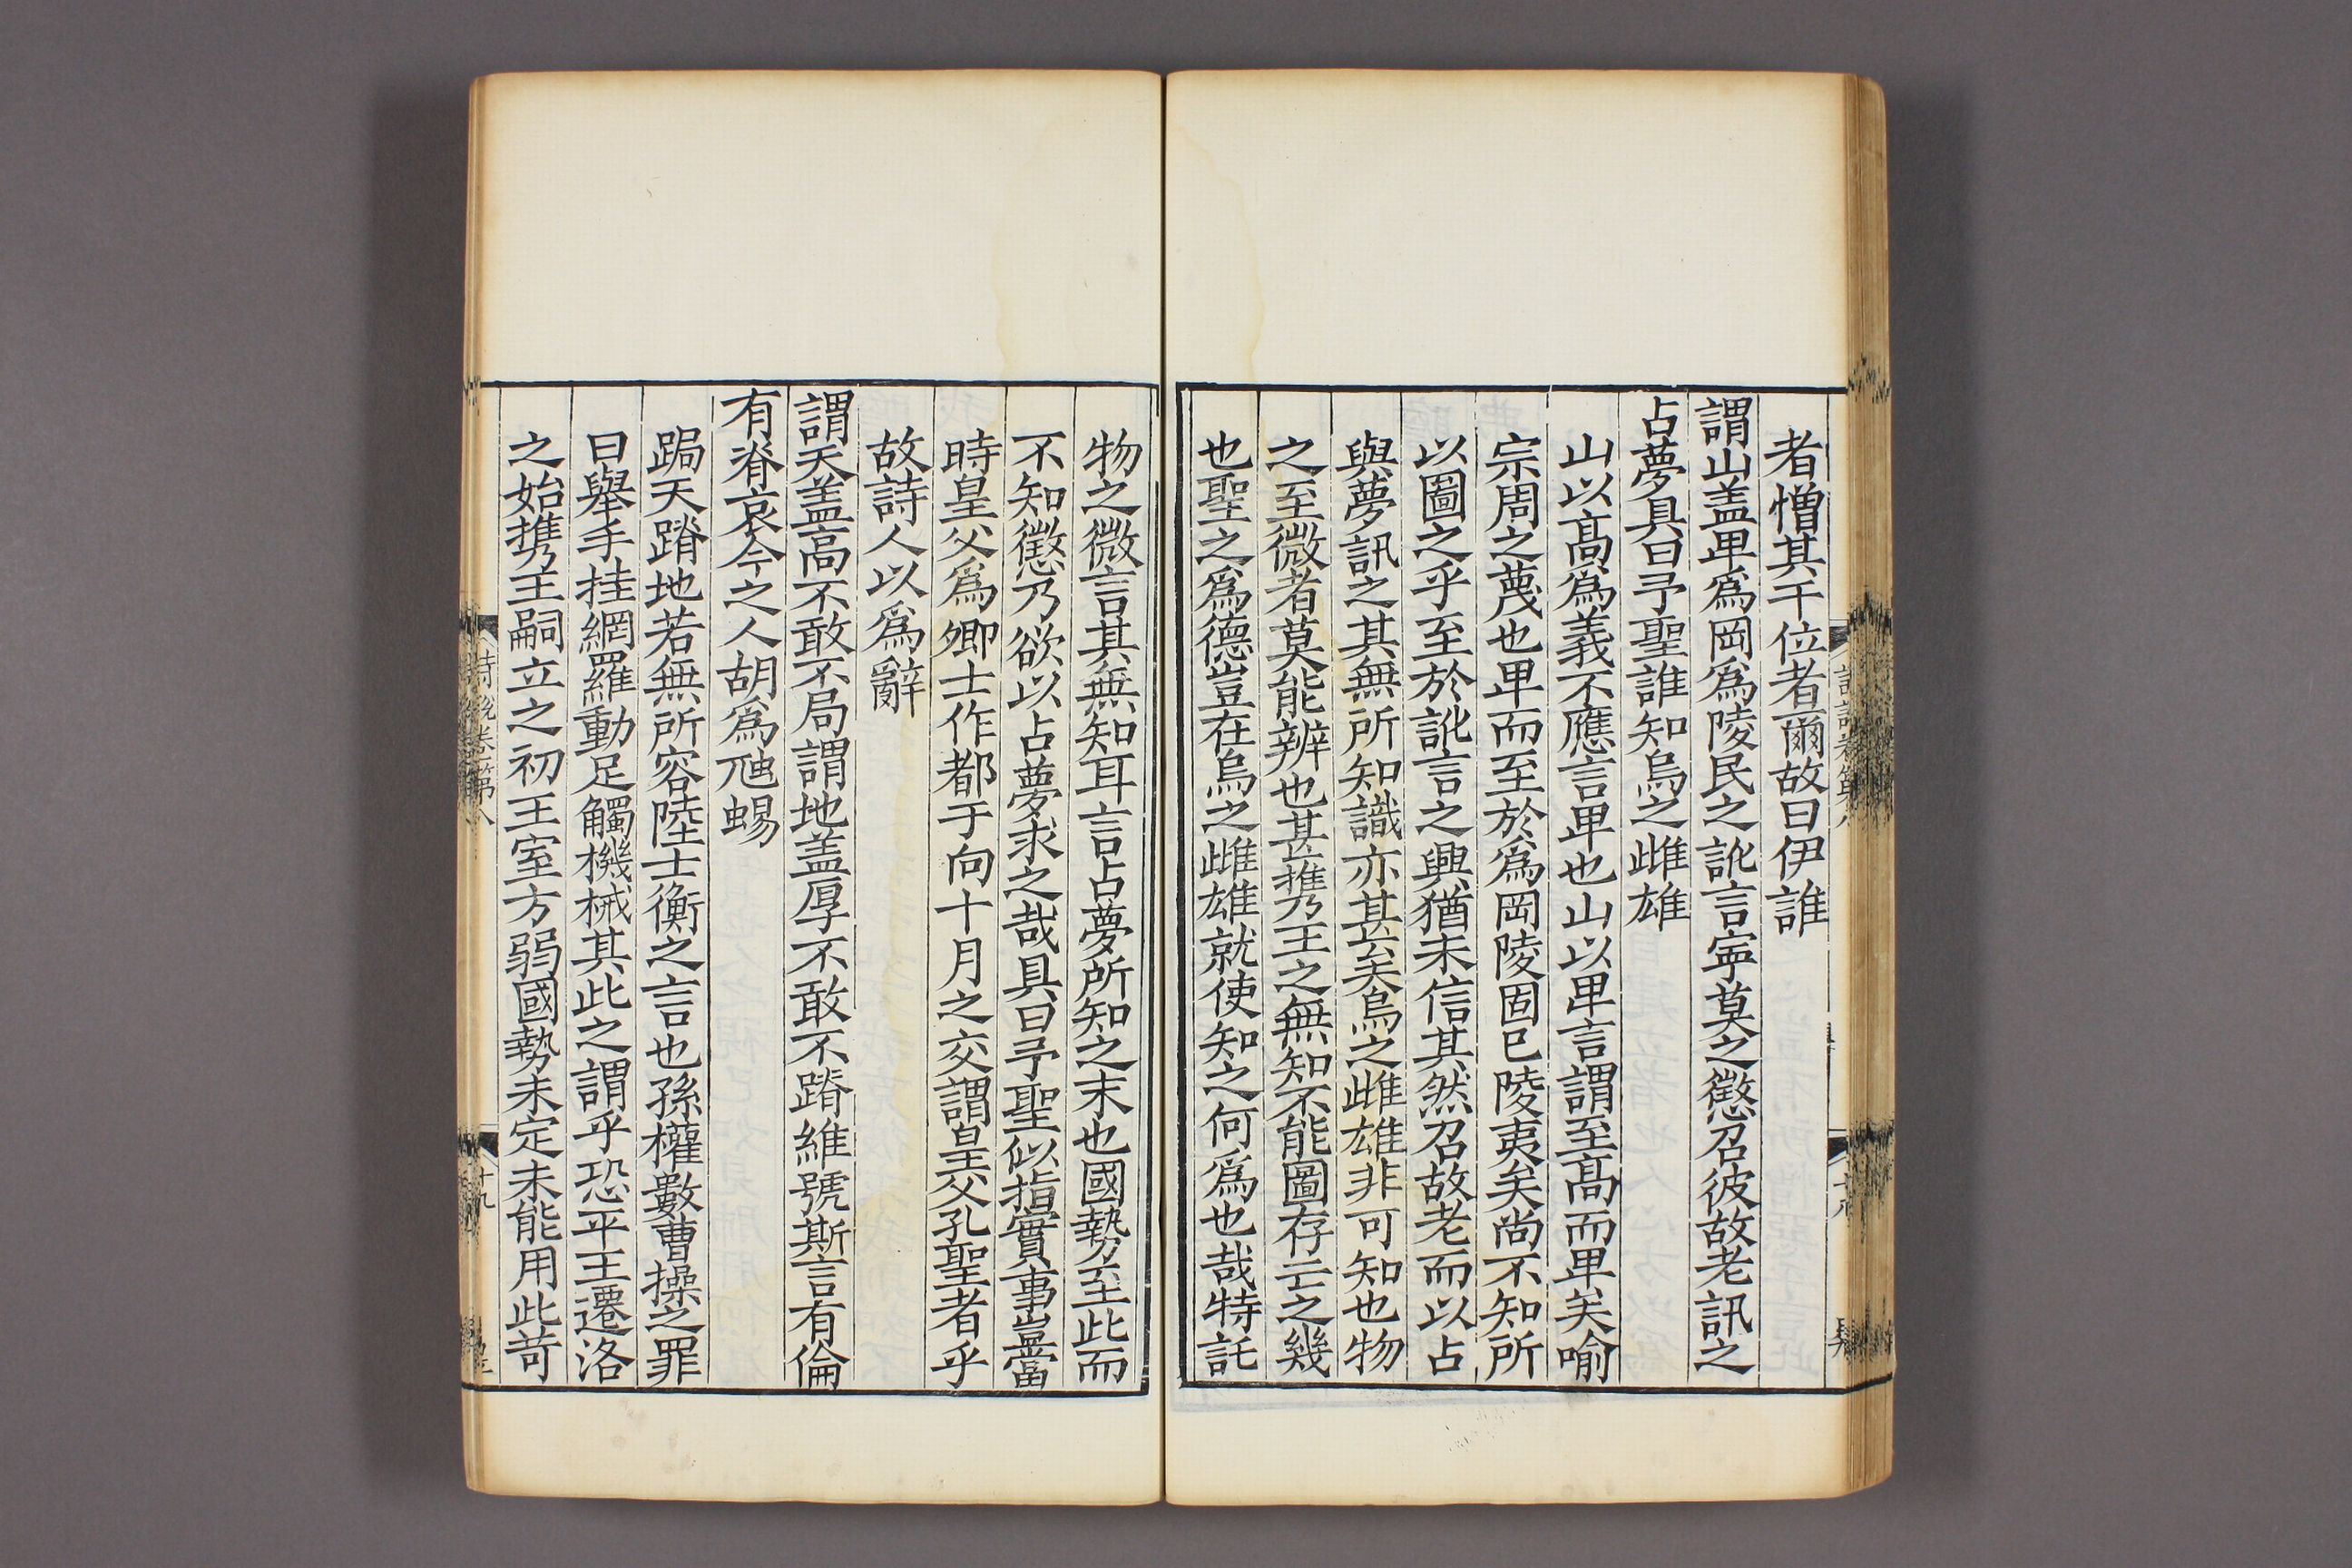 者憎其干位者爾故曰伊誰
謂山盖𤰞爲岡爲陵民之訛言寜莫之懲召彼故老訊之
占夢具曰予聖誰知烏之雌雄
山以髙爲義不應言𤰞也山以𤰞言謂至髙而𤰞矣喻
宗周之蔑也𤰞而至於爲岡陵固已陵夷矣尚不知所
以圖之乎至於訛言之興猶未信其然召故老而以占
與夢訊之其無所知識亦甚矣烏之雌雄非可知也物
之至微者莫能辨也甚擕王之無知不能圖存亡之幾
也聖之爲德豈在烏之雌雄就使知之何爲也哉特託
物之微言其無知耳言占夢所知之末也國勢至此而
不知懲乃欲以占夢求之哉具曰予聖似指實事豈當
時皇父爲卿士作都于向十月之交謂皇父孔聖者乎
故詩人以爲辭
謂天盖高不敢不局謂地盖厚不敢不蹐維號斯言有倫
有脊哀今之人胡爲虺蜴
跼天蹐地若無所容陸士衡之言也孫權數曹操之罪
曰舉手挂網羅動足觸機械其此之謂乎恐平王遷洛
之始擕王嗣立之初王室方弱國勢未定未能用此苛
詩說卷第八
十九